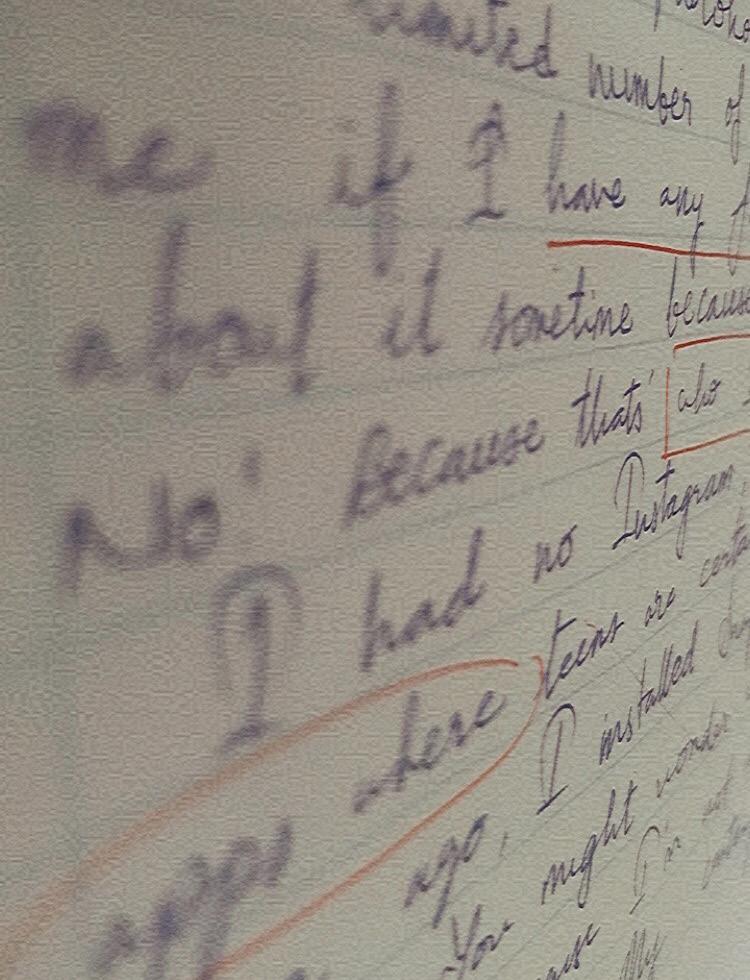 limited number of
me if I have any
about it sometime because
No' Because thats' who
I had no Instagram,
apps where teens are
ago, I installed
You might wonder
I'm not
My